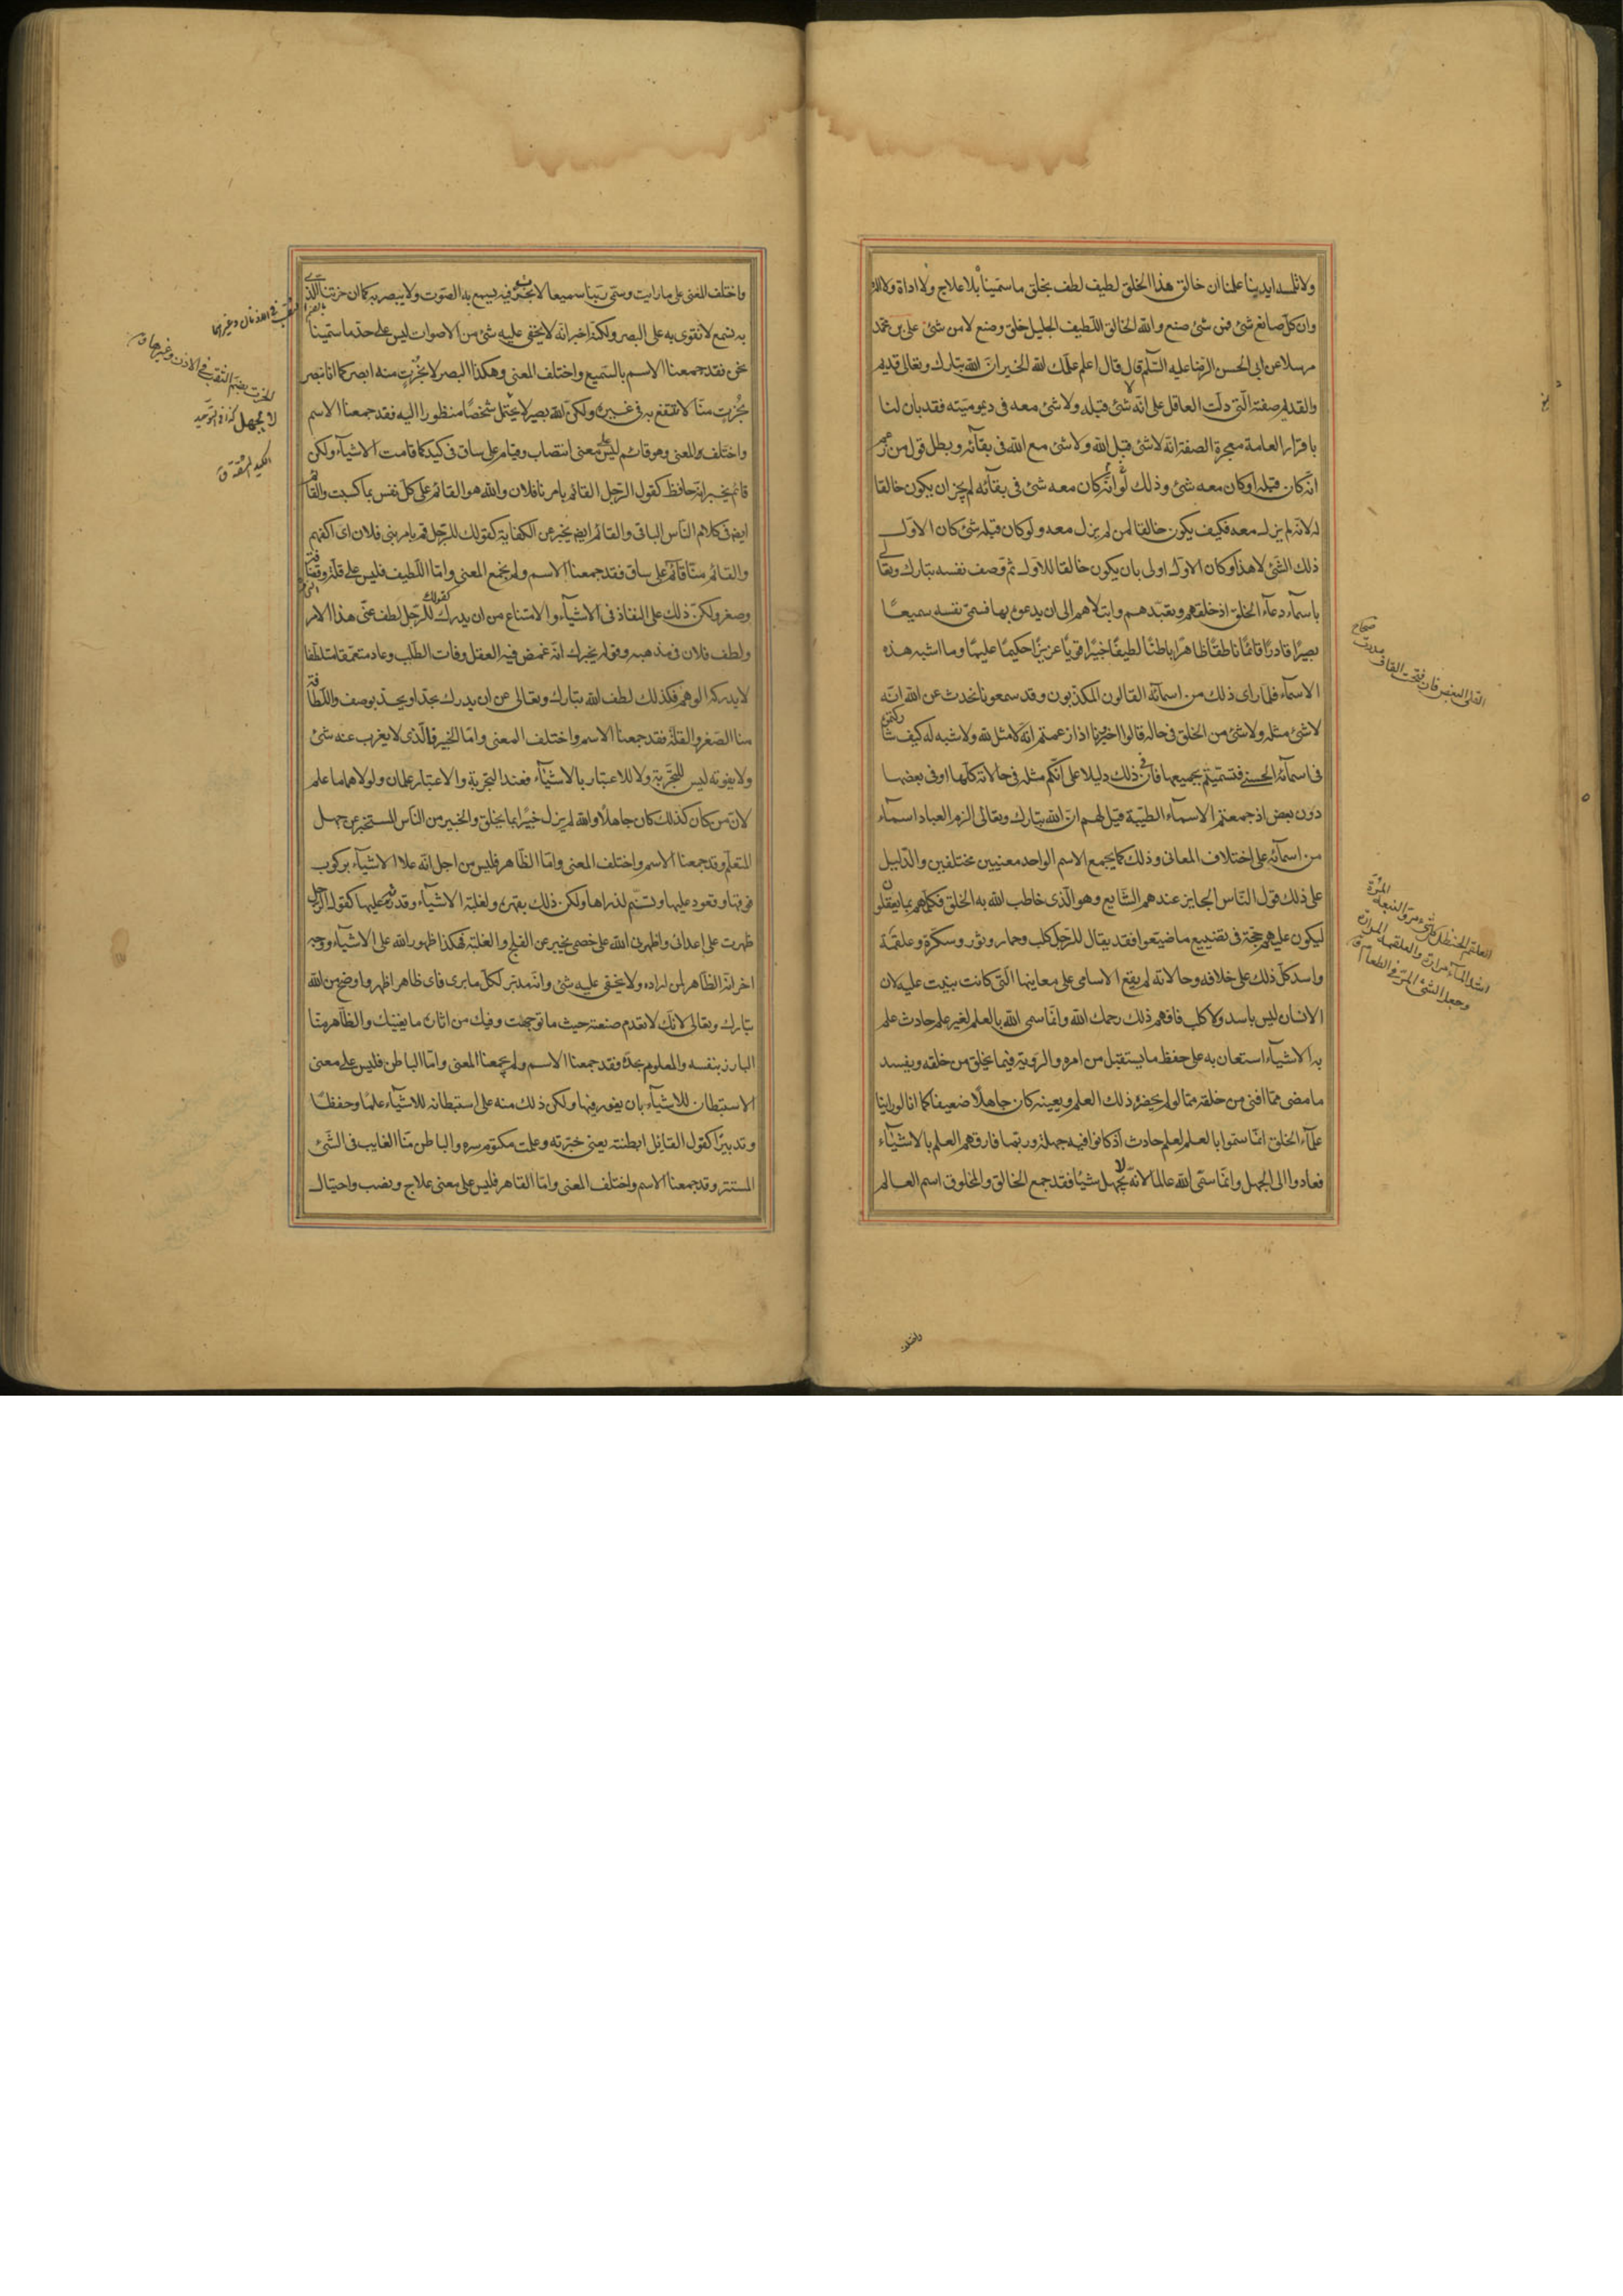 ولا تلمسه ايدينا علمنا ان خالق هذا الخلق لطيف لطف بخلق ما سمّيناه بلا علاج ولا اداة ولا الة
وان كلّ صانع شئ فمن شئ صنع والله الخالق اللطيف الجليل خلق وصنع لا من شئ على بن محمّد
مرسلا عن ابى الحسن الرضا عليه السّلم قال قال اعلم علمك الله الخير انّ الله تبارك وتعالى قديم
والقدم صفته الّتى دلّت العاقل على انّه لا شئ قبله ولا شئ معه فى ديموميّته فقد بان لنا
باقرار العامة معجزة الصفة انه لا شئ قبل الله ولا شئ مع الله فى بقآئه وبطل قول من زعم
انّه كان قبله او كان معه شئ وذلك انّه لو كان معه شئ فى بقآئه لم يجز ان يكون خالقا
له لانه لم يزل معه فكيف يكون خالقا لمن لم يزل معه ولو كان قبله شئ كان الاوّل
ذلك الشئ لا هذا وكان الاوّل اولى بان يكون خالقا للاول ثم وصف نفسه تبارك وتعالى
باسمآء دعآء الخلق اذ خلقهم وتعبّدهم وابتلاهم الى ان يدعوه بها فسمّى نفسه سميعًا
بصيرًا قادرًا قائمًا ناطقًا ظاهرًا باطنًا لطيفًا خبيرًا قويًا عزيزًا حكيمًا عليمًا وما اشبه هذه
الاسمآء فلمّا راى ذلك من اسمآئه القالون المكذبون وقد سمعونا نحدث عن الله انّه
لا شئ مثله ولا شئ من الخلق فى حاله قالوا اخبرونا اذا زعمتم انّه لا مثل لله ولا شبه له كيف شاركتموه
فى اسمآئه الحسنى فتسمّيتم بجميعها فانّ فى ذلك دليلا على انّكم مثله فى حالاته كلّها او فى بعضها
دون بعض اذ جمعتم الاسمآء الطيّبة قيل لهم انّ الله تبارك وتعالى الزم العباد اسمآء
من اسمآئه على اختلاف المعانى وذلك كما يجمع الاسم الواحد معنيين مختلفين والدّليل
على ذلك قول النّاس الجايز عندهم الشّايع وهو الّذى خاطب الله به الخلق فكلّمهم بما يعقلون
ليكون عليهم حجّة فى تضييع ما ضيّعوا فقد يقال للرّجل كلب وحمار وثور وسكّرة وعلقمة
واسد كلّ ذلك على خلافه وحالاته لم يقع الاسامى على معانيها الّتى كانت بنيت عليه لان
الانسان ليس باسد ولا كلب فافهم ذلك رحمك الله وانّما سمّى الله بالعلم لغير علم حادث علم
به الاشيآء استعان به على حفظ ما يستقبل من امره والرّويّة فيما يخلق من خلقه ويفسد
ما مضى ممّا افنى من خلقه ممّا لو لم يحضره ذلك العلم ويعينه كان جاهلًا ضعيفا كما انا لو راينا
علمآء الخلق انّما سمّوا بالعلم لعلم حادث اذ كانوا فيه جهلة وربّما فارقهم العلم بالاشيآء
فعادوا الى الجهل وانّما سمّى الله عالما لانّه لا يجهل شيئًا فقد جمع الخالق والمخلوق اسم العالم
القلى البغض فان فتحت القاف مددت
صحاح
العلقم الحنظل وكل شئ مر والنبعة المرّة
اشد المآء مرارة والعلقمة المرارة
وجعل الشئ المرّ فى الطعام ق
واختلف
واختلف المعنى على ما رايت وسمّى ربّنا سميعا لا بخرت فيه يسمع به الصّوت ولا يبصر به كما ان خرتنا الّذى
به نسمع لا نقوى به على البصر ولكنّه اخبر انّه لا يخفى عليه شئ من الاصوات ليس على حدّ ما سمّينا
نحن فقد جمعنا الاسم بالسّميع واختلف المعنى وهكذا البصر لا بخرت منه ابصر كما انا نبصر
بخُرتٍ منّا لا ننتفع به فى غيره ولكنّ الله بصير لا يحتمل شخصًا منظورا اليه فقد جمعنا الاسم
واختلف المعنى وهو قائم ليس على معنى انتصاب وقيام على ساق فى كبد كما قامت الاشيآء ولكن
قائم يخبر انّه حافظ كقول الرّجل القائم بامرنا فلان والله هو القائم على كلّ نفس بما كسبت والقائم
ايضا فى كلام النّاس الباقى والقائم ايضا يخبر عن الكفاية كقولك للرّجل قم بامر بنى فلان اى اكفهم
والقائم منّا قائم على ساق فقد جمعنا الاسم ولم يجمع المعنى وامّا اللّطيف فليس على قلّة وقضافة
وصغر ولكنّ ذلك على النفاذ فى الاشيآء والامتناع من ان يدرك كقولك للرّجل لطف عنّى هذا الامر
ولطف فلان فى مذهبه وقوله يخبرك انّه غمض فيه العقل وفات الطّلب وعاد متعمّقا متلطّفا
لا يدركه الوهم فكذلك لطف الله تبارك وتعالى عن ان يدرك بحدّ او يحدّ بوصف واللّطافة
منا الصّغر والقلّة فقد جمعنا الاسم واختلف المعنى وامّا الخبير فالّذى لا يعزب عنه شئ
ولا يفوته ليس للتّجربة ولا للاعتبار بالاشيآء فعند التجربة والاعتبار علمان ولولا هما ما علم
لانّ من كان كذلك كان جاهلًا والله لم يزل خبيرًا بما يخلق والخبير من النّاس المستخبر عن جهل
المتعلّم وقد جمعنا الاسم واختلف المعنى وامّا الظّاهر فليس من اجل انّه علا الاشيآء بركوب
فوقها وقعود عليها وتسنّم لذراها ولكن ذلك بقهره ولغلبة الاشيآء وقدرته عليها كقول الرّجل
ظهرت على اعدائى واظهرنى الله على خصمى يخبر عن الفلج والغلبة فهكذا ظهور الله على الاشيآء ووجه
اخر انّه الظّاهر لمن اراده ولا يخفى عليه شئ وانّه مدبّر لكلّ ما برى فاى ظاهر اظهر واوضح من الله
تبارك وتعالى لانّك لا تعدم صنعته حيث ما توجهت وفيك من اثاره ما يغنيك والظّاهر منّا
البارز بنفسه والمعلوم بحدّه فقد جمعنا الاسم ولم يجمعنا المعنى وامّا الباطن فليس على معنى
الاستبطان للاشيآء بان يغور فيها ولكن ذلك منه على استبطانه للاشيآء علمًا وحفظًا
وتدبيرًا كقول القايل ابطنته يعنى خبّرته وعلمت مكتوم سره والباطن منّا الغايب فى الشّئ
المستتر وقد جمعنا الاسم واختلف المعنى وامّا القاهر فليس على معنى علاج ونصب واحتيال
الخرت بضم الثقب فى الاذن وغيرها ق
لا يجهل كذا فى التوحيد
الكبد المشقة ق